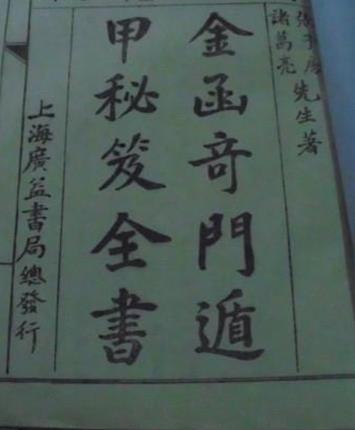 張子房
諸葛亮
先生著
金函奇門遁
甲秘笈全書
上海廣益書局總發行